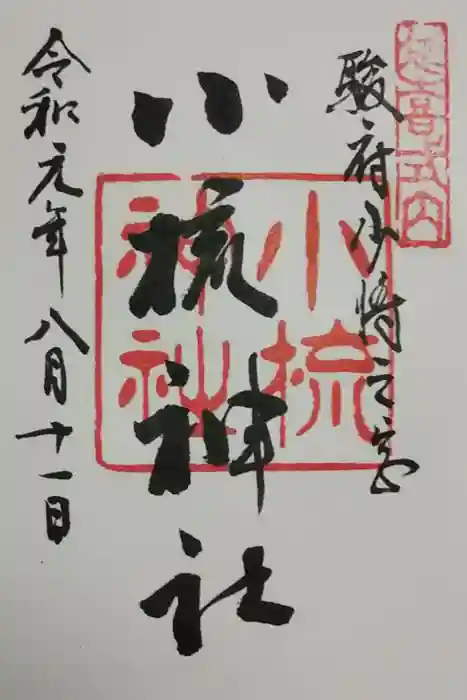 延喜式内
駿府少将之宮
小梳神社
小梳
神社
令和元年八月十一日